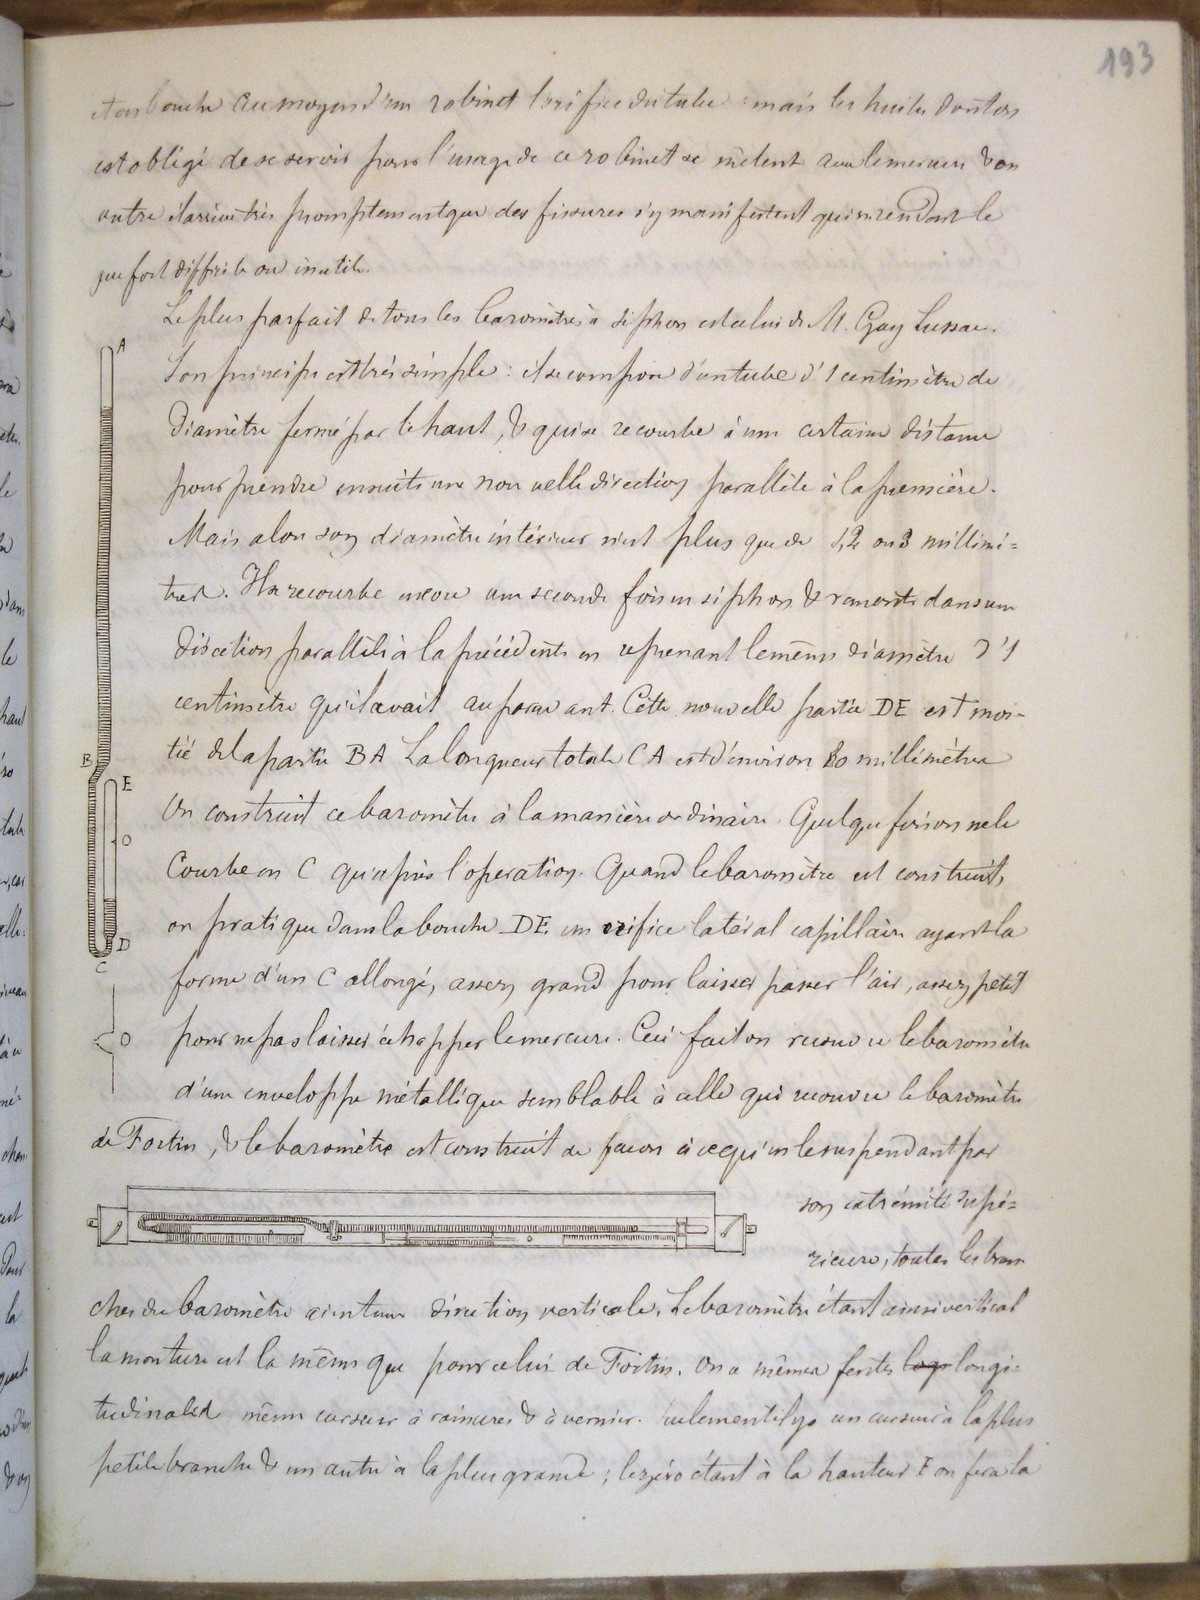 193
et on bouche au moyen d'un robinet l'orifice du tube : mais les huiles dont on
est obligé de se servir pour l'usage de ce robinet se mêlent avec le mercure & en
outre il arrive très promptement que des fissures s'y manifestent qui en rendent le
jeu fort difficile ou inutile.
Le plus parfait de tous les baromètres à siphon est celui de M. Gay Lussac.
Son principe est très simple : il se compose d'un tube d'1 centimètre de
diamètre fermé par le haut, & qui se recourbe à une certaine distance
pour prendre ensuite une nouvelle direction parallèle à la première.
Mais alors son diamètre intérieur n'est plus que de 1,2 ou 3 millimè=
tres. Il se recourbe encore une seconde fois en siphon & remonte dans une
direction parallèle à la précédente en reprenant le même diamètre d'1
centimètre qu'il avait auparavant. Cette nouvelle partie DE est moi=
tié de la partie BA La longueur totale CA est d'environ 80 millimètres
On construit ce baromètre à la manière ordinaire. Quelquefois on ne le
Courbe en C qu'après l'opération. Quand le baromètre est construit,
on pratique dans la bouche DE un orifice latéral capillaire ayant la
forme d'un C allongé, assez grand pour laisser passer l'air, assez petit
pour ne pas laisser échapper le mercure. Ceci fait on recouvre le baromètre
d'une enveloppe métallique semblable à celle qui recouvre le baromètre
de Fortin, & le baromètre est construit de façon à ce qu'en le suspendant par
son extrémité supé=
rieure, toutes les bran
ches du baromètre aient une direction verticale. Le baromètre étant ainsi vertical
la monture est la même que pour celui de Fortin. On a mêmes fentes longi=
tudinales même curseur à rainures & à vernier. Seulement il y a un curseur à la plus
petite branche & un autre à la plus grande ; le zéro étant à la hauteur E on fera la
A
B
E
O
D
C
O